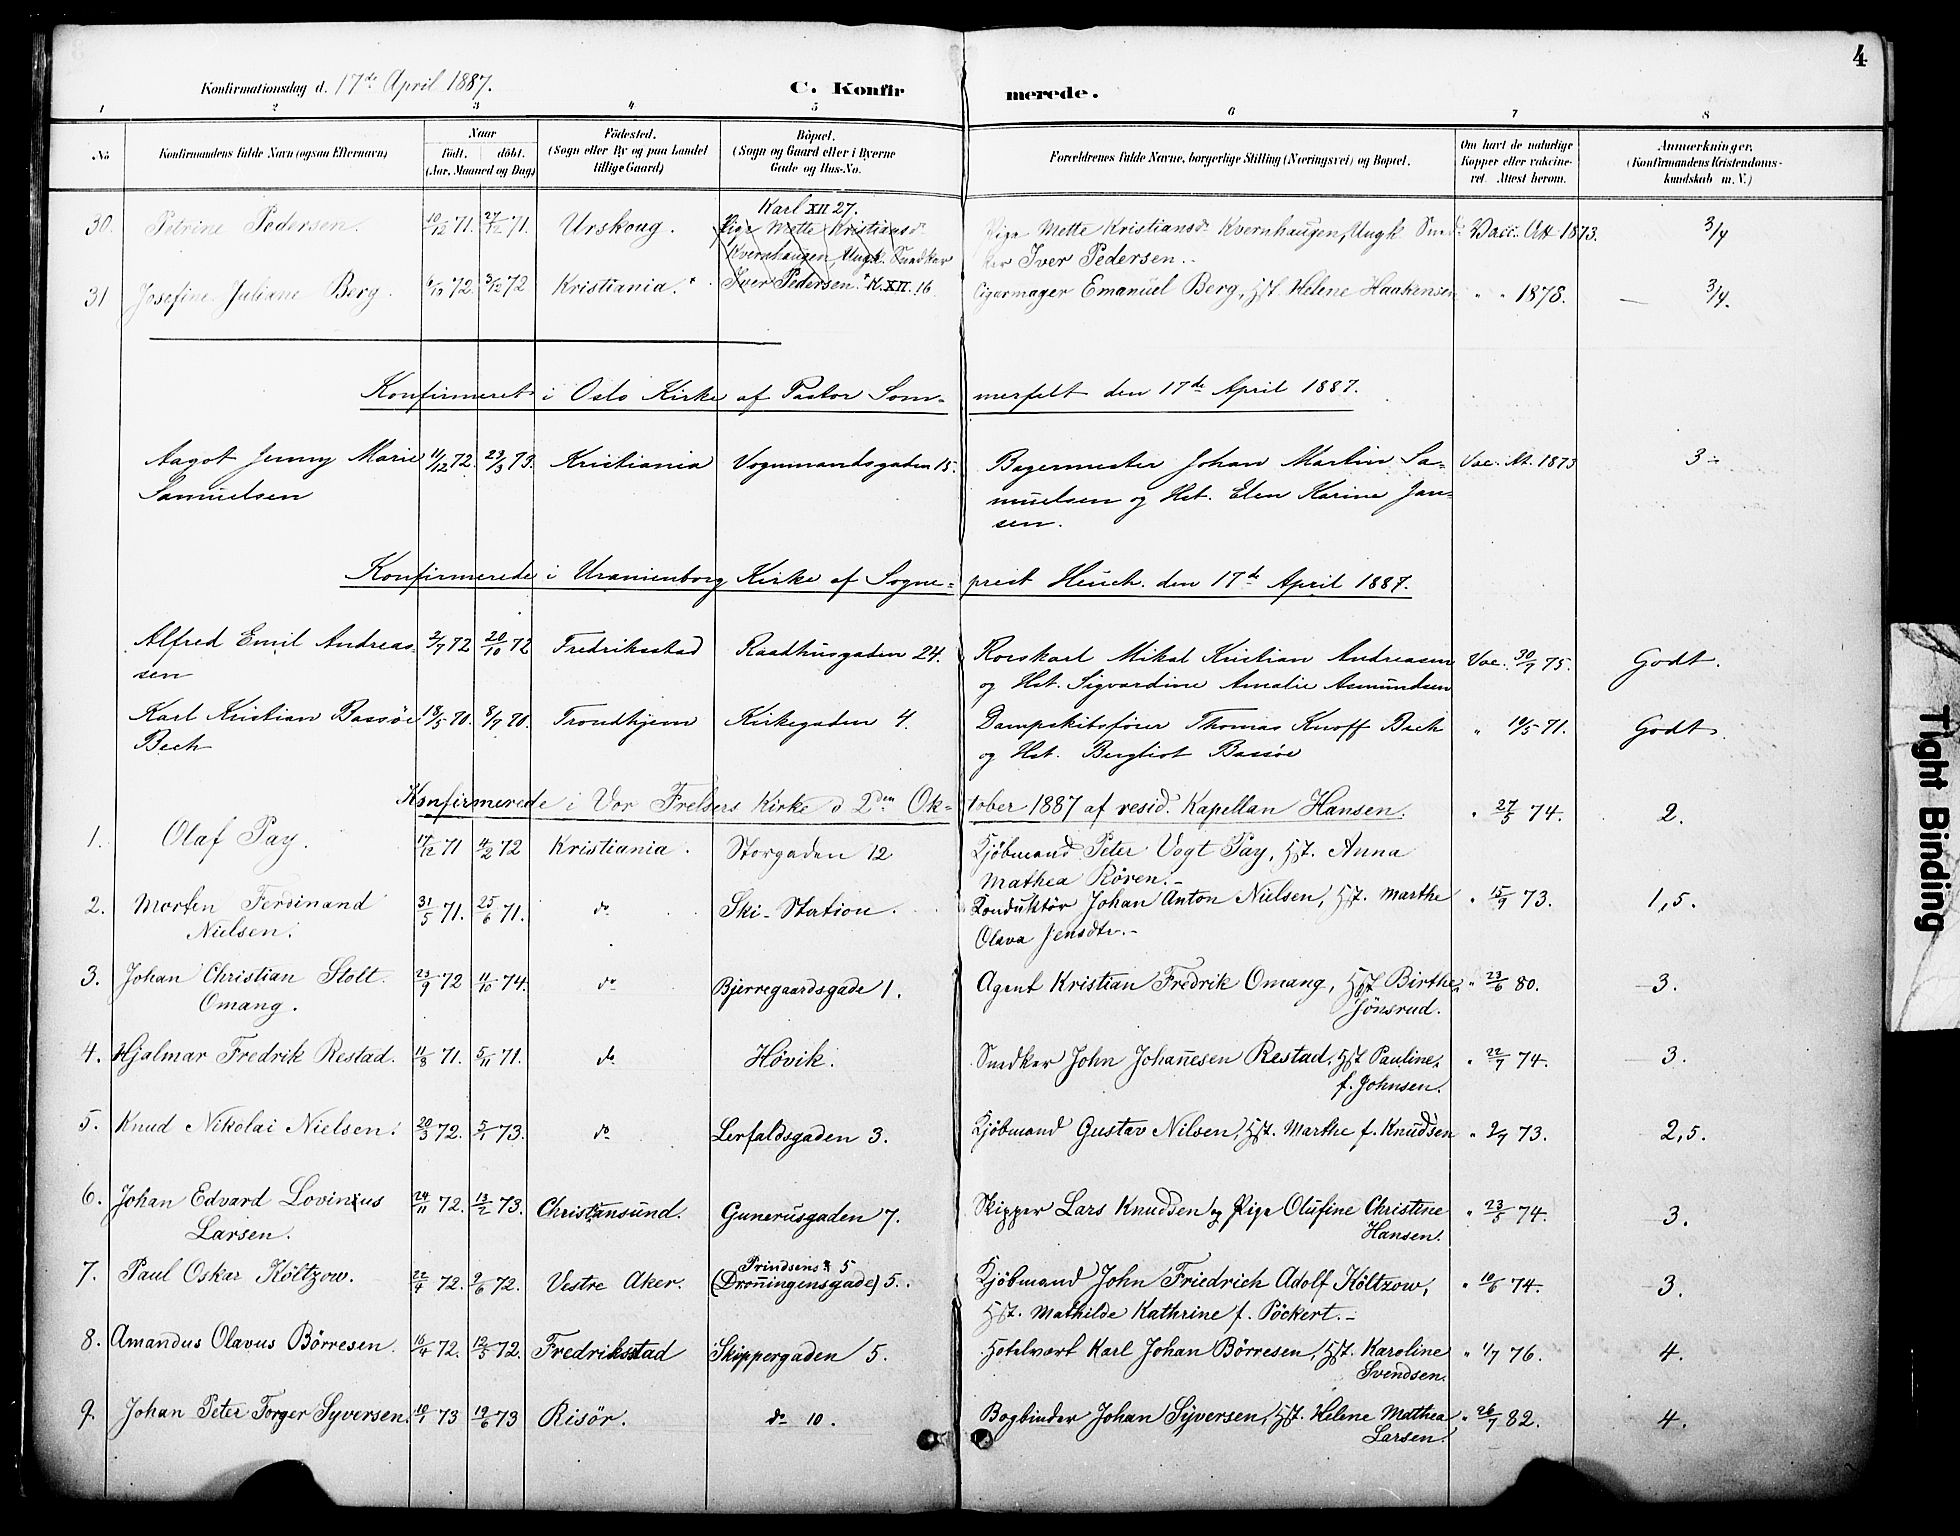 4
Konfirmationsdag d. 17de April 1887. C. Konfir merede.
1 2 3 4 5 6 7 8
No Konfirmandens fulde Navn (ogsaa Efternavn) Naar Födt. döbt. (Aar, Maaned og Dag) Födested. (Sogn eller By og paa Landet tillige Gaard) Bopæl. (Sogn og Gaard eller i Byerne Gade og Hus-No. Forældrenes fulde Navne, borgerlige Stilling (Næringsvei) og Bopæl. Om havt de naturlige Kopper eller vakcineret. Attest herom. Anmerkninger. (Konfirmandens Kristendomskundskab m. V.)
Karl XII 27.
30. Petrine Pedersen. 10/12 71. 27/12 71. Urskoug. Pige Mette Kristiansdr Pige Mette Kristiansdr Kvernhaugen, Ungk. Sned- Vacc. Att 1873. 3/4
Kvernhaugen Ungk. Snedker ker Iver Pedersen.
31 Josefine Juliane Berg. 6/12 72. 3/12 72 Kristiania. Iver Pedersen. K. XII. 16 Cigarmager Emanuel Berg, Hst. Helene Haakensen " " 1878. — 3/4.
Konfirmeret i Oslo Kirke af Pastor Sommerfelt den 17de April 1887.
Aagot Jenny Marie 11/12 72. 23/3 73. Kristiania Vognmandsgaden 15. Bagermester Johan Martin Sa- Vac. At. 1873 3
Samuelsen muelsen og Hst. Elen Karine Jan-
sen.
Konfirmerede i Uranienborg Kirke af Sogneprest Heuch den 17de April 1887.
Alfred Emil Andreas- 2/7 72 20/10 72 Fredriksstad Raadhusgaden 24. Roeskarl Mikal Kristian Andreasen Vac. 30/7 75. Godt.
sen og Hst. Sigvardine Amalie Asmundsen
Karl Kristian Bassöe 18/5 70. 8/7 70. Trondhjem Kirkegaden 4. Dampskibsförer Thomas Knoff Bech " 19/5 71. Godt.
Bech og Hst. Bergliot Bassöe
Konfirmerede i Vor Frelsers Kirke d 2den Oktober 1887 af resid. Kapellan Hansen.
1. Olaf Pay. 17/12 71 4/2 72 Kristiania. Storgaden 12 Kjöbmand Peter Vogt Pay, Hst. Anna " 27/5 74. 2.
Mathea Rören.
2. Morten Ferdinand 31/5 71. 25/6 71. do Ski-Station. Konduktör Johan Anton Nielsen, Hst. Marthe " 15/7 73. 1,5.
Nielsen. Olava Jensdtr.
3. Johan Christian Stolt. 23/9 72 11/10 74. do Bjerregaardsgade 1. Agent Kristian Fredrik Omang, Hst Birthe " 23/6 80. 3.
Omang. Jönsrud.
4. Hjalmar Fredrik Restad. 11/8 71. 5/11 71. do Hövik. Snedker John Johannesen Restad, Hst Pauline, " 22/7 74. 3.
f. Johnsen.
5. Knud Nikolai Nielsen. 20/3 72. 5/1 73. do Lerfaldsgaden 3. Kjöbmand Gustav Nilsen, Hst. Marthe f. Knudsen " 2/7 73. 2,5.
6. Johan Edvard Lovinius 24/11 72. 13/2 73. Christansund. Gunerusgaden 7. Skipper Lars Knudsen og Pige Olufine Christine " 23/5 74. 3.
Larsen. Hansen.
Prindsens 5
7. Paul Oskar Költzow. 22/4 72. 9/6 72. Vestre Aker. (Dronningensgade) 5. Kjöbmand John Friedrich Adolf Költzow, " 10/6 74. 3.
Hst. Mathilde Kathrine f. Pöckert.
8. Amandus Olavus Börresen. 16/4 72. 12/5 72. Fredriksstad Skippergaden 5. Hotelvært Karl Johan Börresen, Hst. Karoline " 1/7 76. 4.
Svendsen.
9. Johan Peter Torger Syversen. 10/1 73 19/6 73 Risör. do 10. Bogbinder Johan Syversen, Hst. Helene Mathea " 26/7 82. 4.
Larsen.
Tight Binding